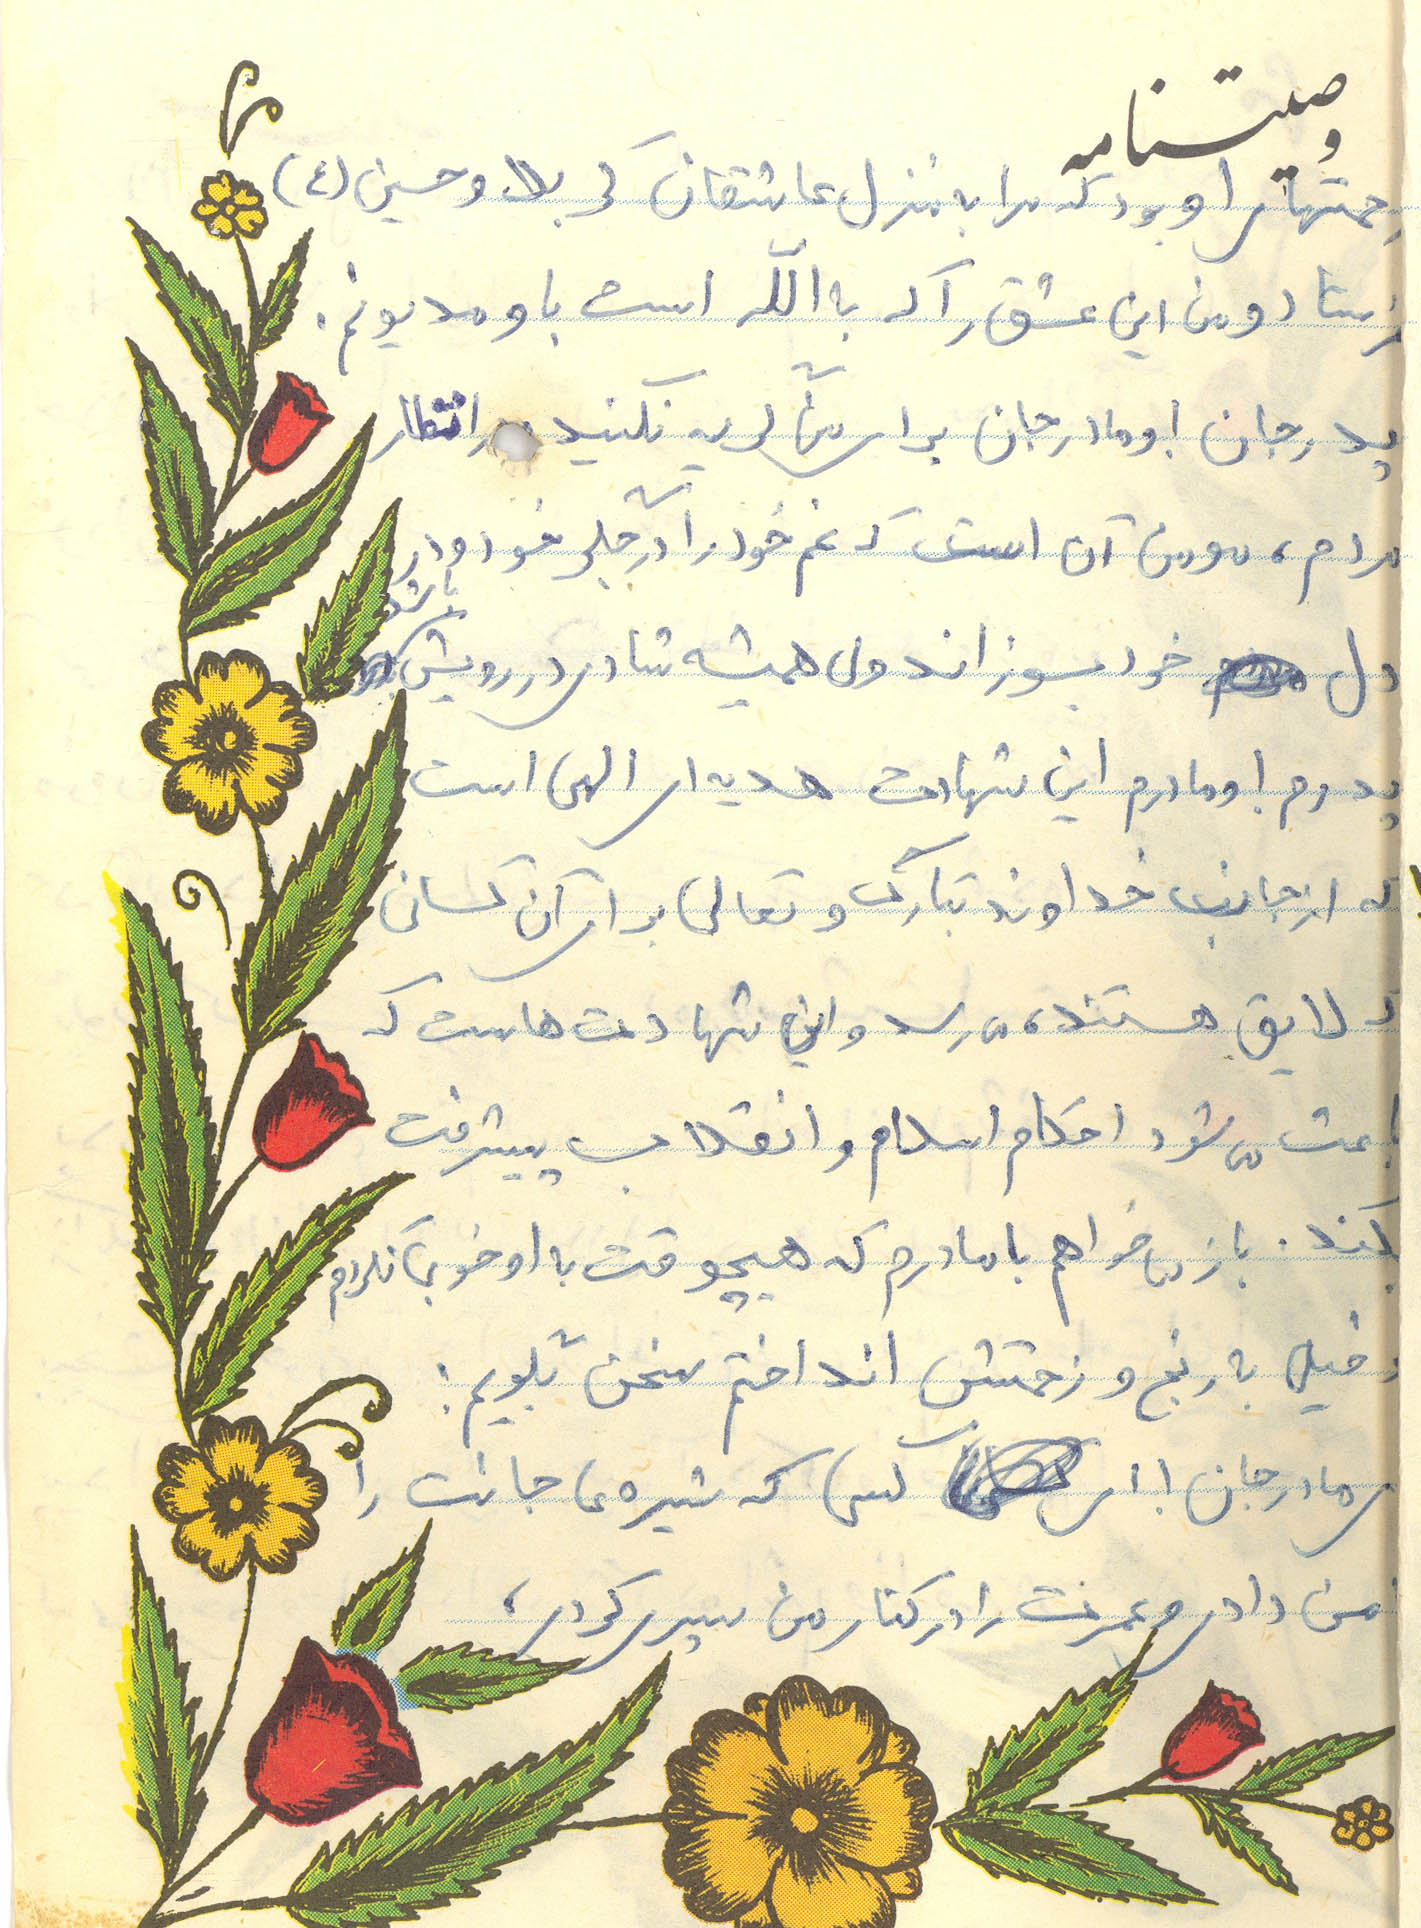 وصیتنامه
زحمتهای او بود که مرا به منزل عاشقان کربلا و حسین (ع)
فرستاد و من این عشق را که به الله است باو مدیونم.
پدر جان! و مادر جان برایش گریه نکنید انتظار
مردم، مومن آن است که غم خود را در جلی خود و در
دل خود بسوزاند ولی همیشه شادی در رویش باشد
پدرم! و مادرم این شهادت هدیه ای الهی است
که از جانب خداوند تبارک و تعالی برای آن کسانی
که لایق هستند، می رسد و این شهادت هاست که
باعث می شود احکام اسلام و انقلاب پیشرفت
بکند. باز می خواهم با مادرم که هیچوقت به او خوبی نکردم
و خیلی به رنج و زحمتش انداختم سخن بگویم:
ای مادر جان! ای کسی که شیره ی جانت را
بمن دادی و عمرت را در کنار من سپری کردی،